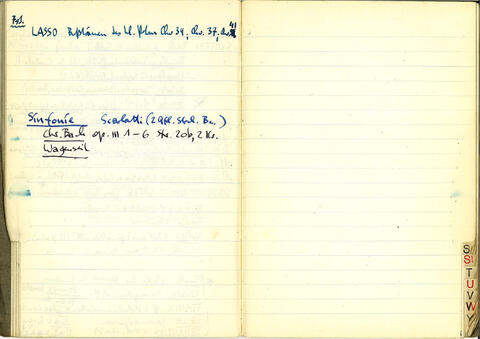 Psl.
LASSO Bußpsalmen des kl. Chr 34, Chr. 37, Chr. 41
Sinfonie Scarlatti (2 Gfl. Strl. Bc.)
Chr. Bach op. III 1-6 Str. 2 Ob, 2 Kr.
Wagenseil
S/
St
T
U
V
W
Y